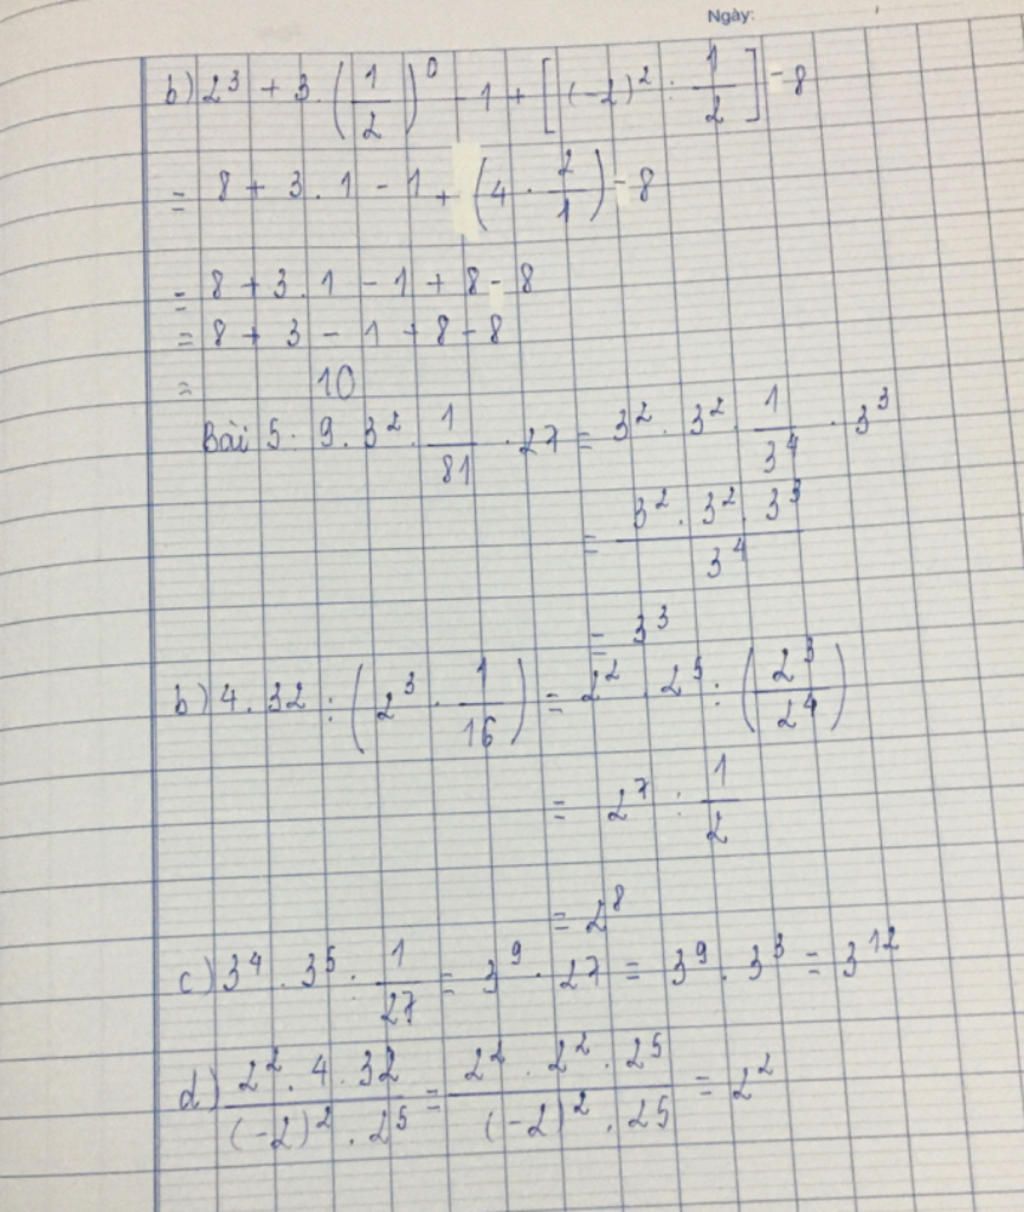 Ngày:
b) 2³ + 3 . (1/2)⁰ - 1 + [(-2)² : 1/2] - 8
= 8 + 3 . 1 - 1 + (4 . 2/1) - 8
= 8 + 3 . 1 - 1 + 8 - 8
= 8 + 3 - 1 + 8 - 8
= 10
Bài 5. 9 . 3² . 1/81 . 27 = 3² . 3² . 1/3⁴ . 3³
= (3² . 3² . 3³)/3⁴
= 3³
b) 4 . 32 : (2³ . 1/16) = 2² . 2⁵ : (2³/2⁴)
= 2⁷ : 1/2
= 2⁸
c) 3⁴ . 3⁵ : 1/27 = 3⁹ . 27 = 3⁹ . 3³ = 3¹²
d) (2² . 4 . 32)/((-2)² . 2⁵) = (2² . 2² . 2⁵)/((-2)² . 2⁵) = 2²